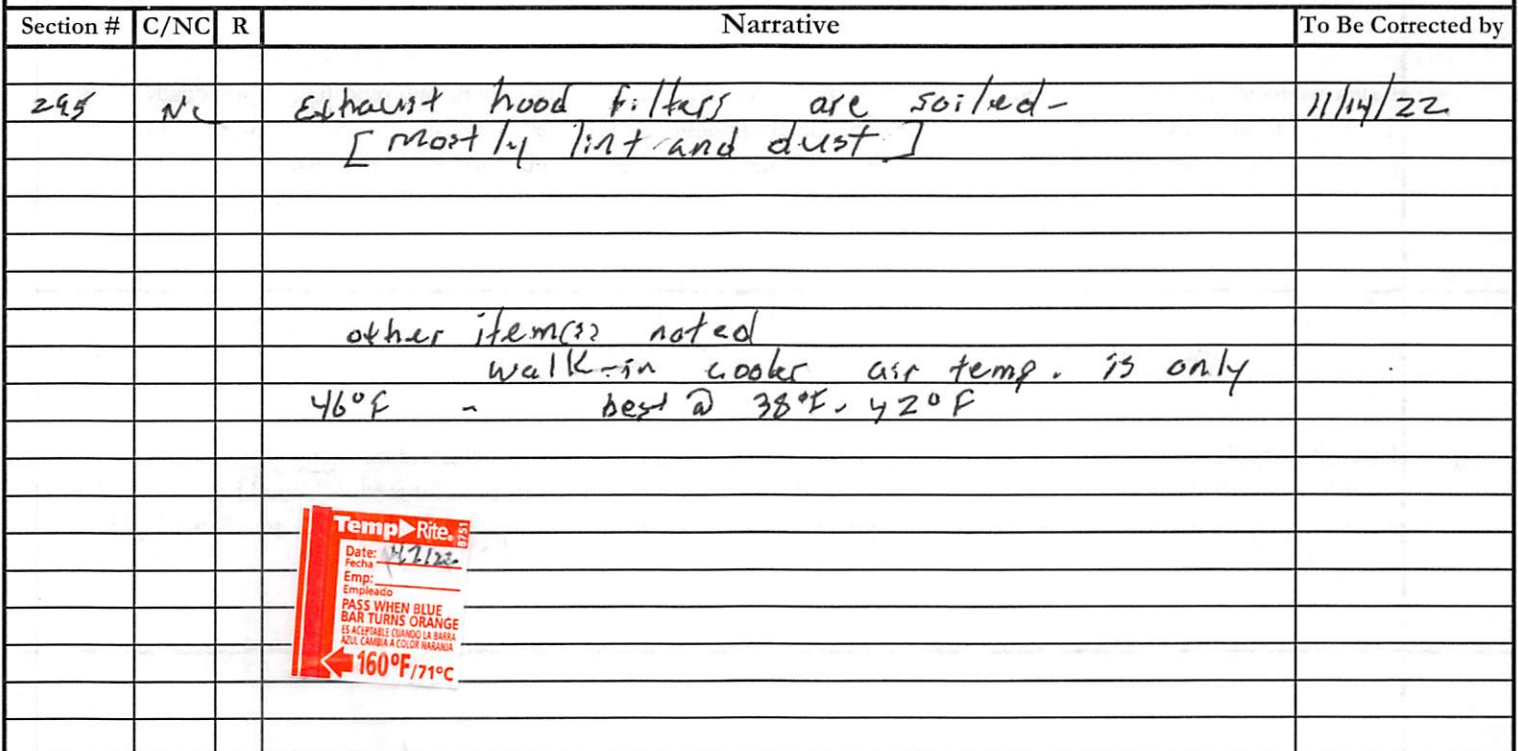 Section # C/NC R Narrative To Be Corrected by
295 NC Exhaust hood filters are soiled- 11/14/22
[Mostly lint and dust]
other item(s) noted
walk-in cooler air temp. is only
46°F - best @ 38°F - 42°F
Temp Rite® 8751
Date:
Fecha
Emp:
Empleado
PASS WHEN BLUE
BAR TURNS ORANGE
ES ACEPTABLE CUANDO LA BARRA
AZUL CAMBIA A COLOR NARANJA
160°F/71°C